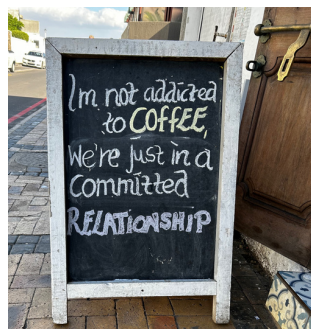 I'm not addicted
to COFFEE,
We're just in a
committed
RELATIONSHIP